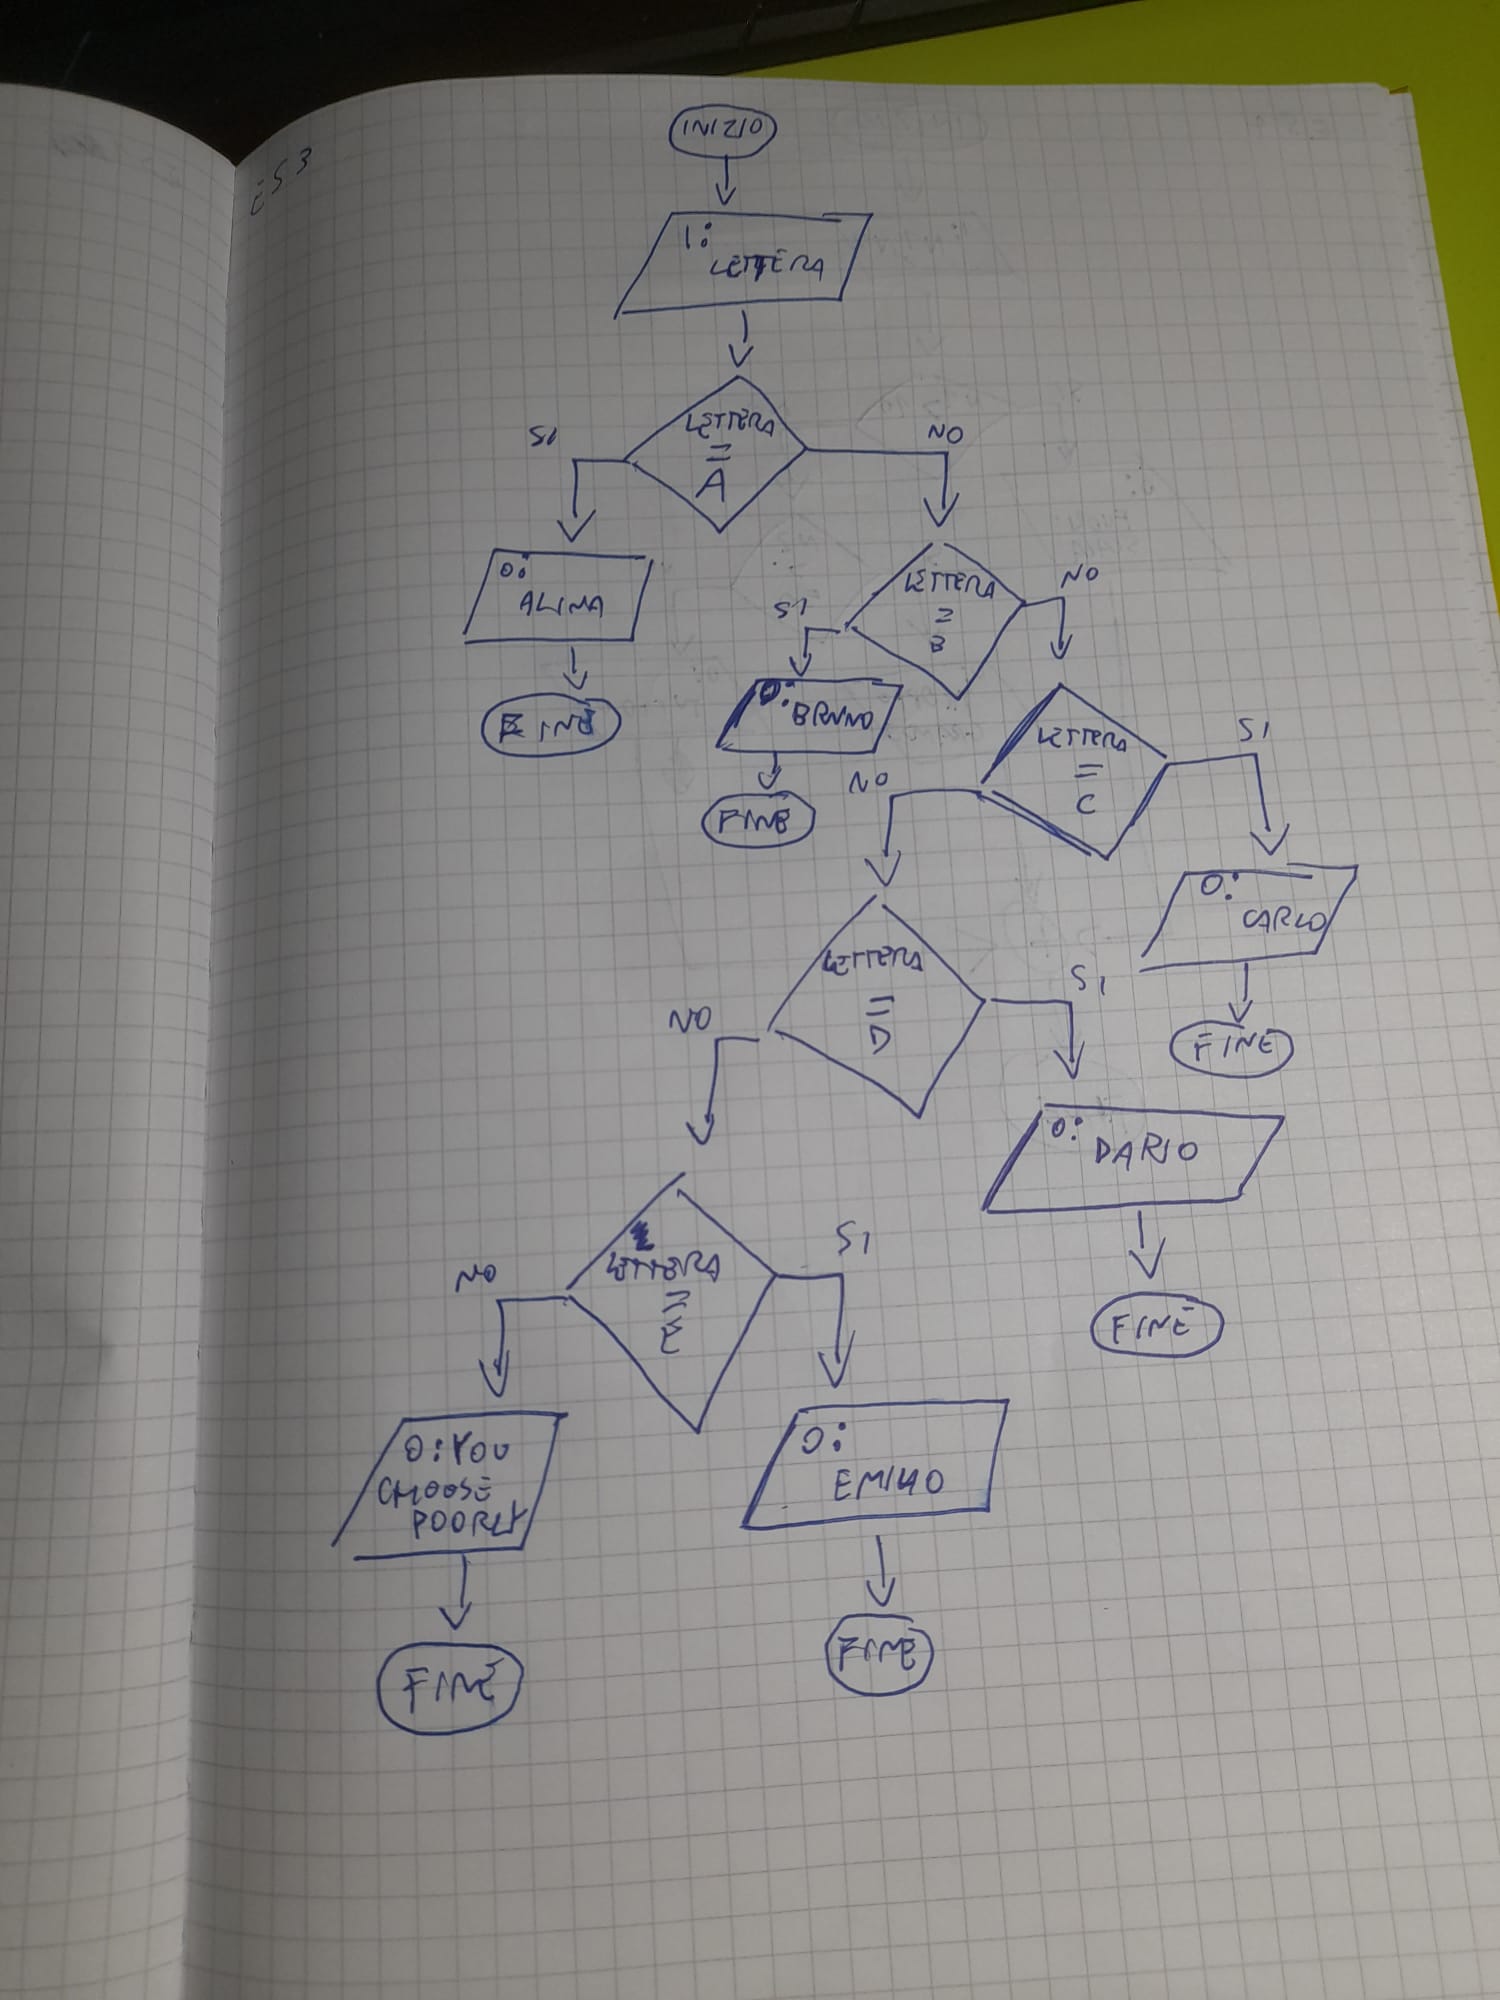 ES3
INIZIO
I:
LETTERA
LETTERA
=
A
SI
NO
O:
ALINA
FINE
LETTERA
=
B
SI
NO
O: BRUNO
FINE
LETTERA
=
C
NO
SI
O:
CARLO
FINE
LETTERA
=
D
NO
SI
O: DARIO
FINE
LETTERA
=
E
NO
SI
O: YOU
CHOOSE
POORLY
FINE
O:
EMILIO
FINE